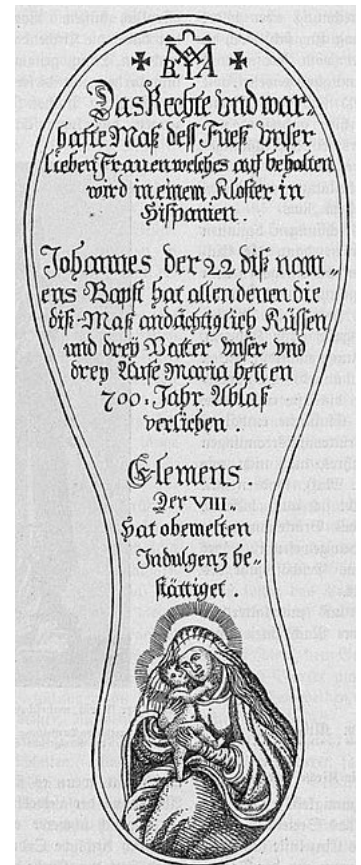 ✠ MARIA ✠
Das Rechte vnd war-
hafte Maß deß Fueß vnser
lieben Frauen welches auf behalten
wird in einem Kloster in
Hispanien.
Johannes der 22 diß nam-
ens Bapst hat allen denen die
diß Maß andächtiglich Küssen
und drey Vatter vnser vnd
drey Aufe Maria betten
700. Jahr Ablaß
verlichen.
Clemens.
Der VIII.
hat obemelten
Indulgenz be-
stättiget.